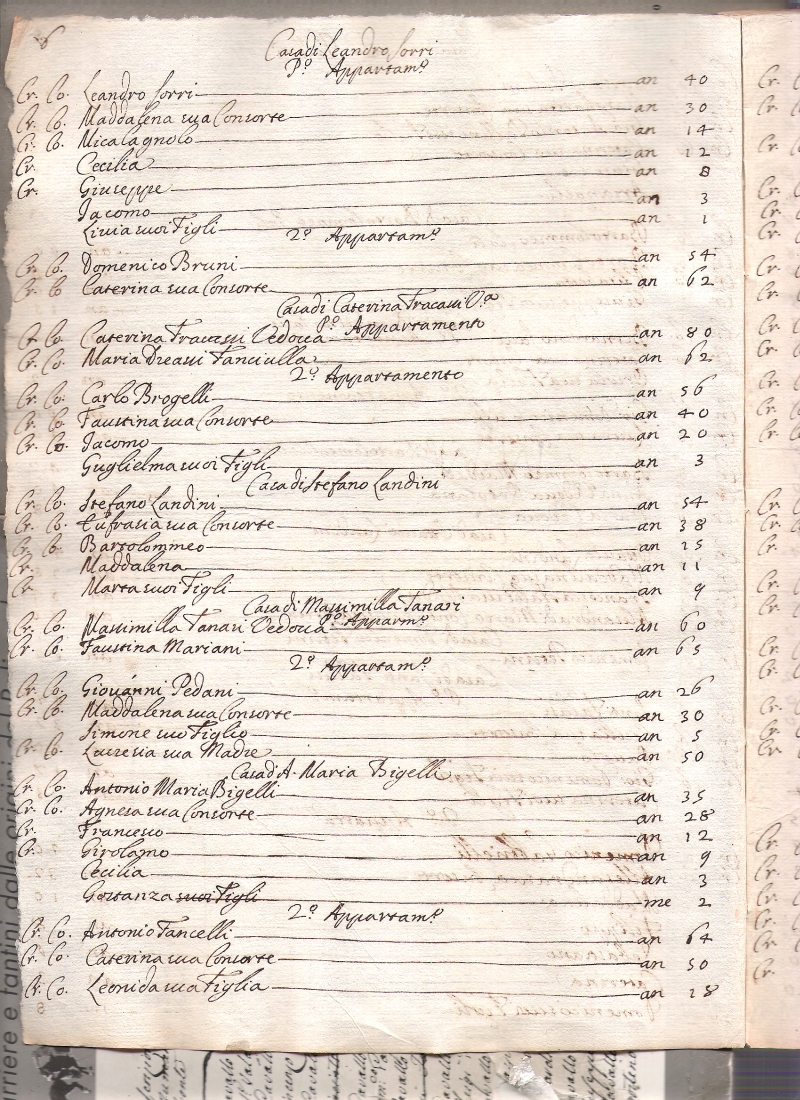 6
Casa di Leandro Sorri
P.º Appartam.º
Cr. Co. Leandro Sorri an 40
Cr. Co. Maddalena sua Consorte an 30
Cr. Co. Micalagnolo an 14
Cr. Cecilia an 12
Cr. Giuseppe an 8
Jacomo an 3
Livia suoi Figli an 1
2.º Appartam.º
Cr. Co. Domenico Bruni an 54
Cr. Co Caterina sua Consorte an 62
Casa di Caterina Fracassi V.a
P.º Appartamento
Cr. Co. Caterina Fracassi Vedova an 80
Cr. Co. Maria Fanciulla an 62
2.º Appartamento
Cr. Co. Carlo Brogelli an 56
Cr. Co. Faustina sua Consorte an 40
Cr. Co. Jacomo an 20
Guglielma suoi Figli an 3
Casa di Stefano Landini
Cr. Co. Stefano Landini an 54
Cr. Co. Eufrasia sua Consorte an 38
Cr. Co Bartolommeo an 15
Cr. Maddalena an 11
Cr Marta suoi Figli an 9
Casa di Massimilla Tanari
P.º Apparm.º
Cr. Co. Massimilla Tanari Vedova an 60
Cr. Co. Faustina Mariani an 65
2.º Appartam.º
Cr. Co. Giovanni Pedani an 26
Cr. Co. Maddalena sua Consorte an 30
Simone suo Figlio an 5
Cr. Co. Lucresia sua Madre an 50
Casa di A. Maria Bigelli
Cr. Co. Antonio Maria Bigelli an 35
Cr. Co. Agnesa sua Consorte an 28
Cr. Francesco an 12
Cr. Girolamo an 9
Cecilia an 3
Gostanza suoi Figli me 2
2.º Appartam.º
Cr. Co. Antonio Fancelli an 64
Cr. Co. Caterina sua Consorte an 50
Cr. Co. Leonida sua Figlia an 18